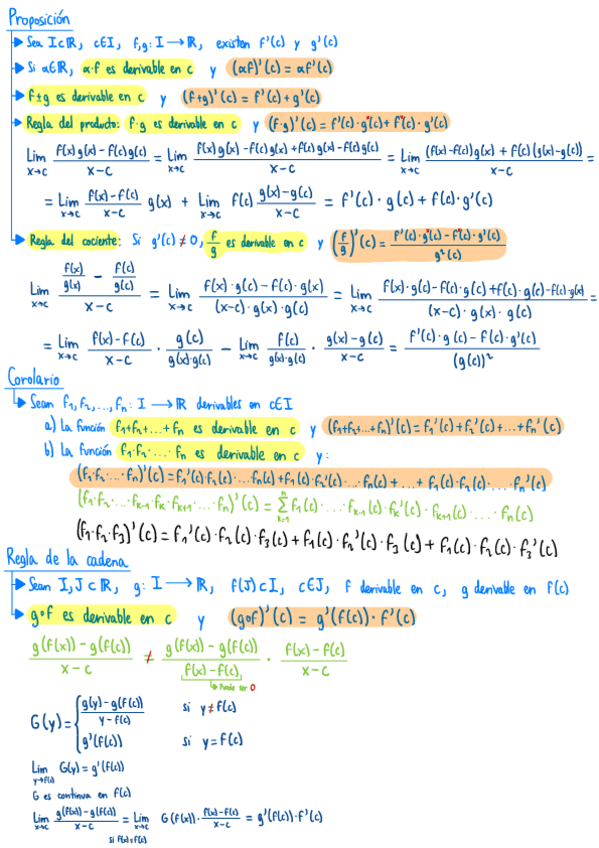 Proposición
Sea I⊂ℝ, c∈I, f,g: I → ℝ, existen f'(c) y g'(c)
Si α∈ℝ, α·f es derivable en c y (αf)'(c) = αf'(c)
f±g es derivable en c y (f+g)'(c) = f'(c) + g'(c)
Regla del producto: f·g es derivable en c y (f·g)'(c) = f'(c)·g(c) + f(c)·g'(c)
Lim x→c (f(x)g(x) - f(c)g(c))/(x-c) = Lim x→c (f(x)g(x) - f(c)g(x) + f(c)g(x) - f(c)g(c))/(x-c) = Lim x→c ((f(x)-f(c))g(x) + f(c)(g(x)-g(c)))/(x-c) =
= Lim x→c (f(x)-f(c))/(x-c) g(x) + Lim x→c f(c) (g(x)-g(c))/(x-c) = f'(c)·g(c) + f(c)·g'(c)
Regla del cociente: Si g'(c) ≠ 0, f/g es derivable en c y (f/g)'(c) = (f'(c)·g(c) - f(c)·g'(c))/g²(c)
Lim x→c (f(x)/g(x) - f(c)/g(c))/(x-c) = Lim x→c (f(x)·g(c) - f(c)·g(x))/((x-c)·g(x)·g(c)) = Lim x→c (f(x)·g(c) - f(c)·g(c) + f(c)·g(c) - f(c)·g(x))/((x-c)·g(x)·g(c)) =
= Lim x→c (f(x)-f(c))/(x-c) · g(c)/(g(x)·g(c)) - Lim x→c f(c)/(g(x)·g(c)) · (g(x)-g(c))/(x-c) = (f'(c)·g(c) - f(c)·g'(c))/(g(c))²
Corolario
Sean f₁, f₂, ..., fₙ: I → ℝ derivables en c∈I
a) La función f₁+f₂+...+fₙ es derivable en c y (f₁+f₂+...+fₙ)'(c) = f₁'(c) + f₂'(c) + ... + fₙ'(c)
b) La función f₁·f₂·...·fₙ es derivable en c y:
(f₁·f₂·...·fₙ)'(c) = f₁'(c)·f₂(c)·...fₙ(c) + f₁(c)·f₂'(c)·...fₙ(c) + ... + f₁(c)·f₂(c)·...fₙ'(c)
(f₁·f₂·...·fₖ₋₁·fₖ·fₖ₊₁·...·fₙ)'(c) = Σₖ₌₁ⁿ f₁(c)·...·fₖ₋₁(c)·fₖ'(c)·fₖ₊₁(c)·...·fₙ(c)
(f₁·f₂·f₃)'(c) = f₁'(c)·f₂(c)·f₃(c) + f₁(c)·f₂'(c)·f₃(c) + f₁(c)·f₂(c)·f₃'(c)
Regla de la cadena
Sean I, J⊂ℝ, g: I → ℝ, f(J)⊂I, c∈J, f derivable en c, g derivable en f(c)
g∘f es derivable en c y (g∘f)'(c) = g'(f(c))·f'(c)
(g(f(x)) - g(f(c)))/(x-c) ≠ (g(f(x)) - g(f(c)))/(f(x)-f(c)) · (f(x)-f(c))/(x-c)
Puede ser 0
G(y) = { (g(y)-g(f(c)))/(y-f(c)) si y≠f(c)
g'(f(c)) si y=f(c)
Lim y→f(c) G(y) = g'(f(c))
G es continua en f(c)
Lim x→c (g(f(x))-g(f(c)))/(x-c) = Lim x→c G(f(x))·(f(x)-f(c))/(x-c) = g'(f(c))·f'(c)